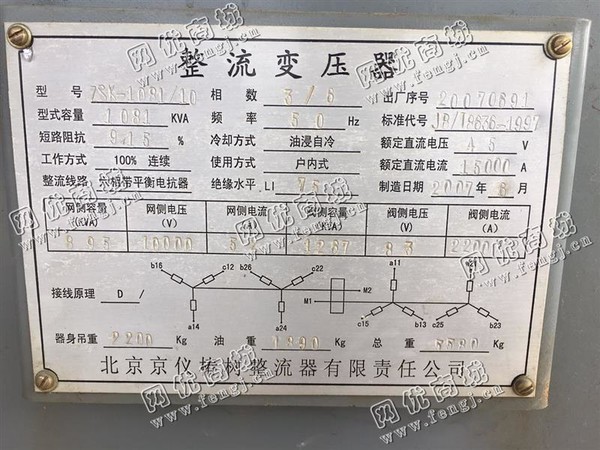 整流变压器
型号 ZSK-1081/10 相数 3/6 出厂序号 20070691
型式容量 1081 KVA 频率 50 Hz 标准代号 JB/T8636-1997
短路阻抗 9.15 % 冷却方式 油浸自冷 额定直流电压 45 V
工作方式 100% 连续 使用方式 户内式 额定直流电流 15000 A
整流线路 带平衡电抗器 绝缘水平 LI 75 制造日期 2007 年 月
网侧容量(KVA) 网侧电压(V) 网侧电流 阀侧容量(KVA) 阀侧电压(V) 阀侧电流(A)
893 10000 1267 83
b16 c12 b26 c22 a11
接线原理 D/ M1 M2
a14 a24 c15 b13 c25 b23
器身吊重 2200 Kg 油重 Kg 总重 Kg
北京京仪椿树整流器有限责任公司
网优商城
www.fengj.com.cn